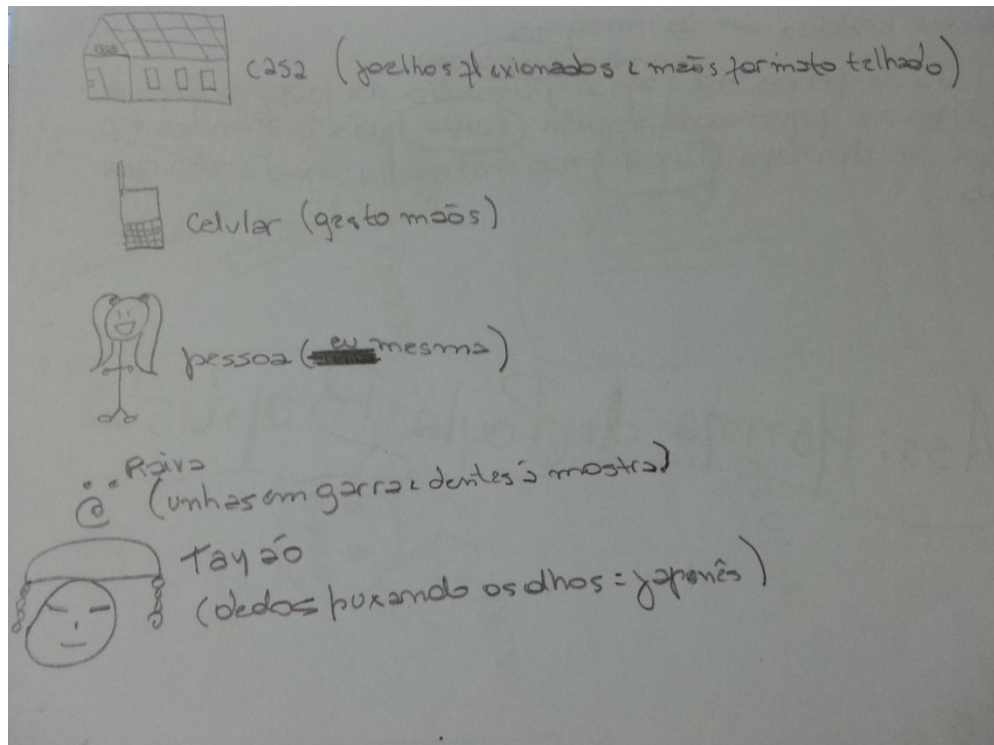 casa (joelhos flexionados e mãos formato telhado)
celular (gesto mãos)
pessoa (eu mesma)
Raiva
(unhas em garra e dentes à mostra)
(dedos puxando os olhos = japonês)